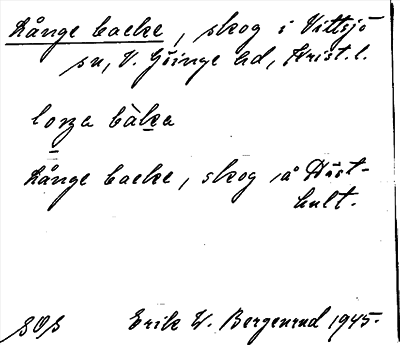 Långe backe, skog i Vittsjö
sn, V. Göinge hd, Krist. l.
loŋa bàka
Långe backe, skog å Häst-
hult.
SOS Erik W. Bergenrud 1945.